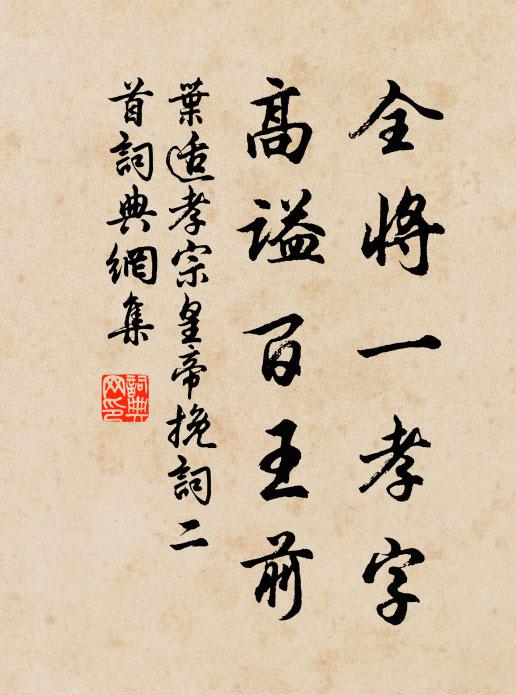 全將一孝字
高謚百王前
葉适孝宗皇帝挽詞二
首詞典網集
詞典网印